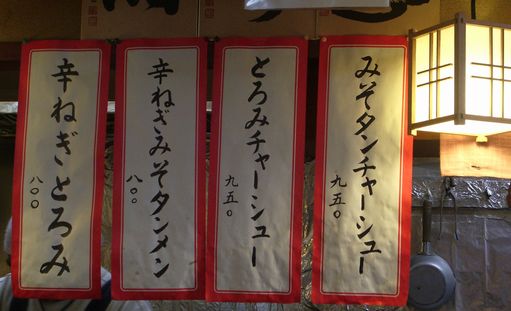 みそタンチャーシュー
九五〇
とろみチャーシュー
九五〇
辛ねぎみそタンメン
八〇〇
辛ねぎとろみ
八〇〇